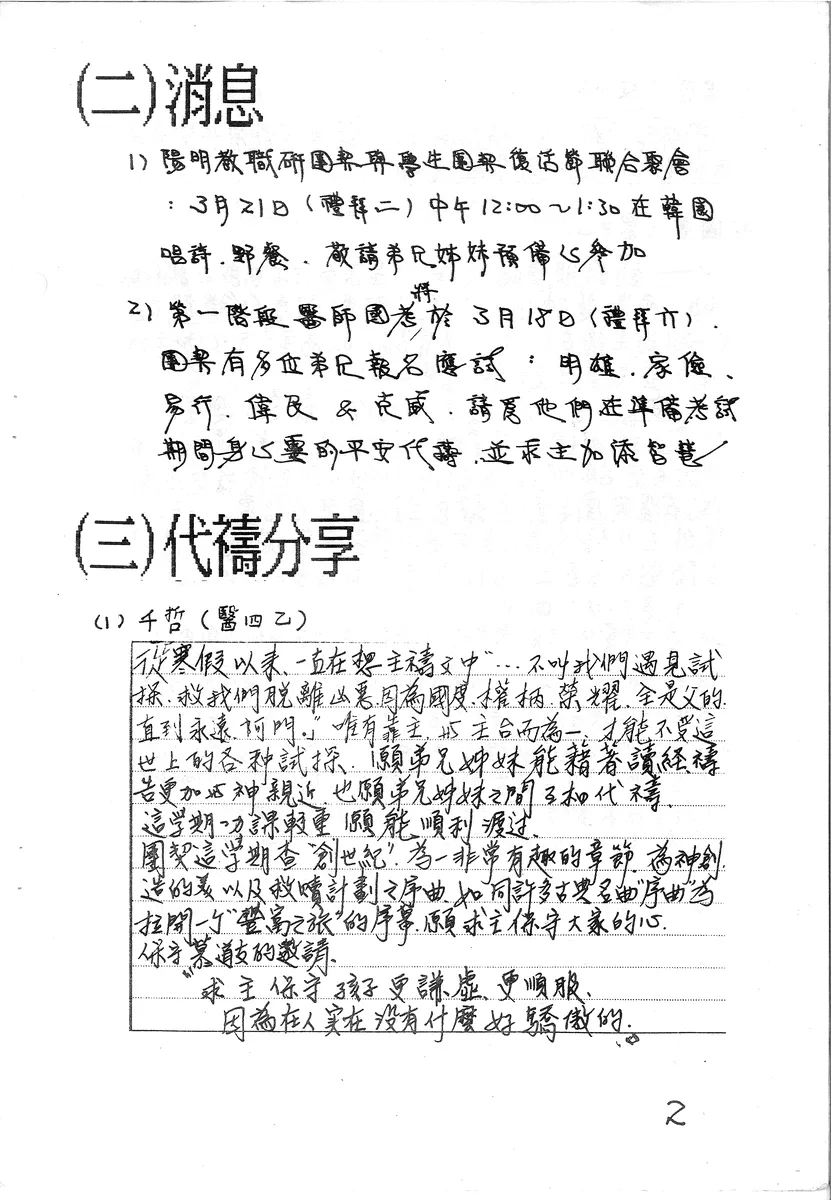 (二)消息
1) 陽明教職研團契與學生團契復活節聯合聚會
: 3月21日(禮拜二)中午12:00~1:30在韓園
唱詩、野餐、敬請弟兄姊妹預備心參加
2) 第一階段醫師國考將於3月18日(禮拜六)、
團契有多位弟兄報名應試:明雄、家儉、
易行、偉民 & 克威、請為他們在準備考試
期間身心靈的平安代禱、並求主加添智慧
(三)代禱分享
(1) 千哲(醫四乙)
從寒假以來、一直在想主禱文中"…不叫我們遇見試
探、救我們脫離凶惡、因為國度、權柄、榮耀、全是父的、
直到永遠、阿門。"唯有靠主、與主合而為一、才能不受這
世上的各种試探、願弟兄姊妹能藉著讀經禱
告更加與神親近、也願弟兄姊妹之間互相代禱、
這學期功課較重 願能順利渡过、
團契這學期查"創世紀"、為一非常有趣的章節、為神創
造的美以及救贖計劃之序曲、如同許多古典名曲"序曲"為
拉開一个"豐富之旅"的序幕、願求主保守大家的心、
保守慕道友的邀請、
"求主保守孩子更謙虛、更順服、
因為在人实在沒有什麼好驕傲的、"
2